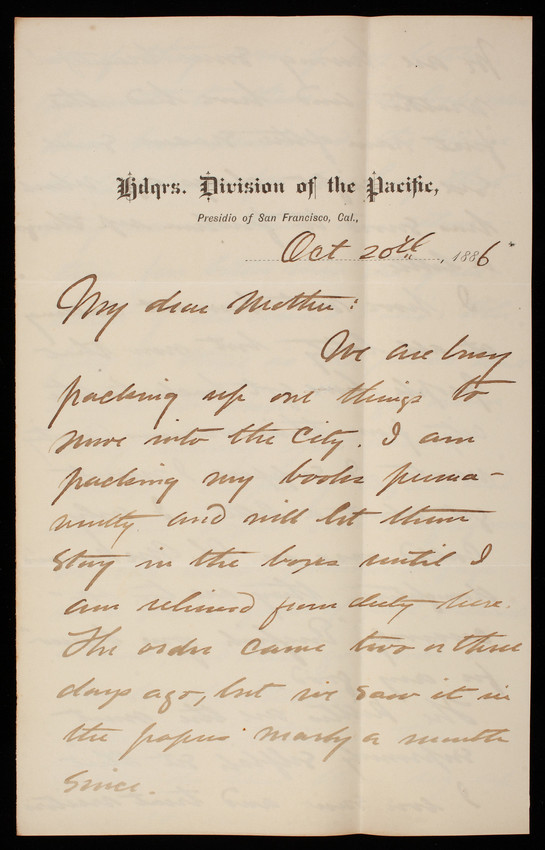 Hdqrs. Division of the Pacific,
Presidio of San Francisco, Cal.,
Oct 20th, 1886
My dear Mother:
We are busy
packing up our things to
move into the City. I am
packing my books perma-
nently and will let them
stay in the boxes until I
am relieved from duty here.
The order came two or three
days ago, but we saw it in
the papers nearly a month
since.